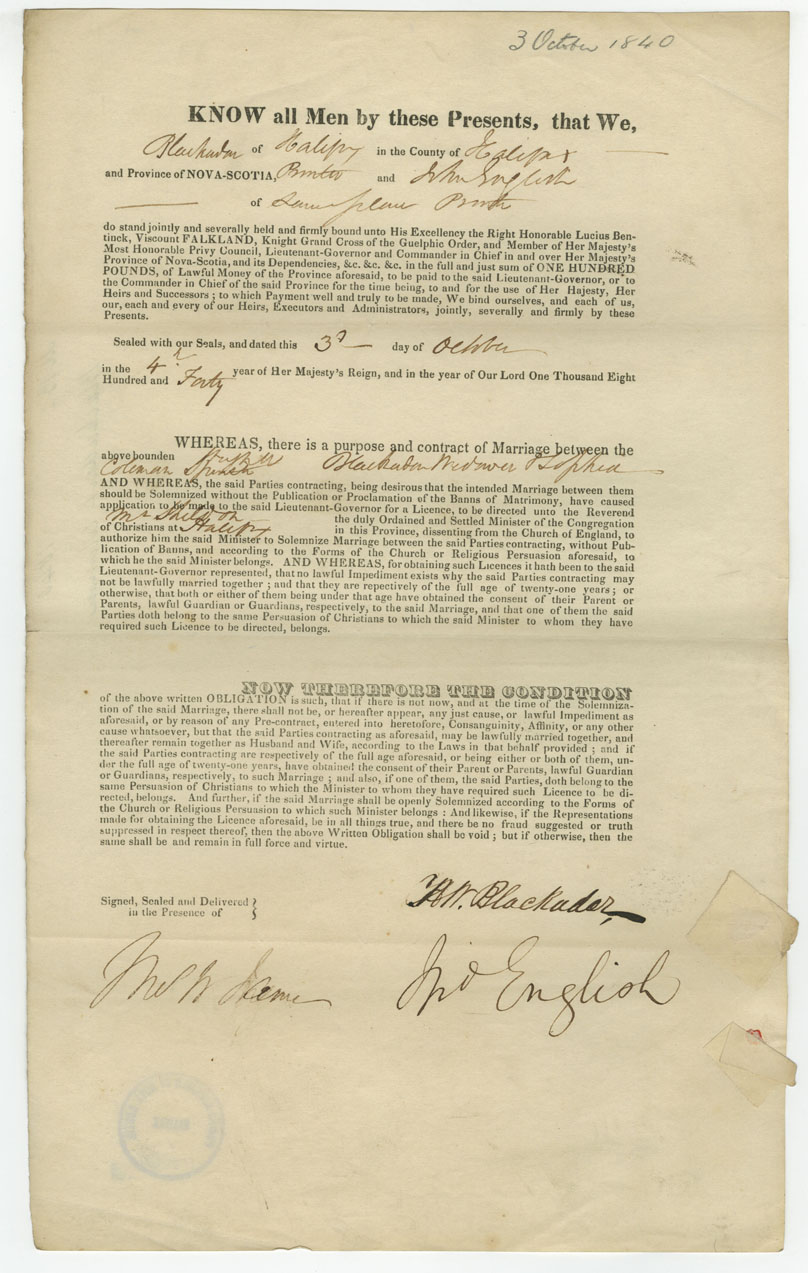 3 October 1840
KNOW all Men by these Presents, that We,
Blackadar of Halifax in the County of Halifax
and Province of NOVA-SCOTIA, Printer and John English
of same place Printer
do stand jointly and severally held and firmly bound unto His Excellency the Right Honorable Lucius Ben-
tinck, Viscount FALKLAND, Knight Grand Cross of the Guelphic Order, and Member of Her Majesty's
Most Honorable Privy Council, Lieutenant-Governor and Commander in Chief in and over Her Majesty's
Province of Nova-Scotia, and its Dependencies, &c. &c. &c. in the full and just sum of ONE HUNDRED
POUNDS, of Lawful Money of the Province aforesaid, to be paid to the said Lieutenant-Governor, or to
the Commander in Chief of the said Province for the time being, to and for the use of Her Hajesty, Her
Heirs and Successors ; to which Payment well and truly to be made, We bind ourselves, and each of us,
our, each and every of our Heirs, Executors and Administrators, jointly, severally and firmly by these
Presents.
Sealed with our Seals, and dated this 3d day of October
in the 4th year of Her Majesty's Reign, and in the year of Our Lord One Thousand Eight
Hundred and Forty
WHEREAS, there is a purpose and contract of Marriage between the
above bounden Blackadar Widower & Sophia
Coleman Spinster
AND WHEREAS, the said Parties contracting, being desirous that the intended Marriage between them
should be Solemnized without the Publication or Proclamation of the Banns of Matrimony, have caused
application to be made to the said Lieutenant-Governor for a Licence, to be directed unto the Reverend
Mr the duly Ordained and Settled Minister of the Congregation
of Christians at Halifax in this Province, dissenting from the Church of England, to
authorize him the said Minister to Solemnize Marriage between the said Parties contracting, without Pub-
lication of Banns, and according to the Forms of the Church or Religious Persuasion aforesaid, to
which he the said Minister belongs. AND WHEREAS, for obtaining such Licences it hath been to the said
Lieutenant-Governor represented, that no lawful Impediment exists why the said Parties contracting may
not be lawfully married together ; and that they are repectively of the full age of twenty-one years ; or
otherwise, that both or either of them being under that age have obtained the consent of their Parent or
Parents, lawful Guardian or Guardians, respectively, to the said Marriage, and that one of them the said
Parties doth belong to the same Persuasion of Christians to which the said Minister to whom they have
required such Licence to be directed, belongs.
NOW THEREFORE THE CONDITION
of the above written OBLIGATION is such, that if there is not now, and at the time of the Solemniza-
tion of the said Marriage, there shall not be, or hereafter appear, any just cause, or lawful Impediment as
aforesaid, or by reason of any Pre-contract, entered into heretofore, Consanguinity, Affinity, or any other
cause whatsoever, but that the said Parties contracting as aforesaid, may be lawfully married together, and
thereafter remain together as Husband and Wife, according to the Laws in that behalf provided ; and if
the said Parties contracting are respectively of the full age aforesaid, or being either or both of them, un-
der the full age of twenty-one years, have obtained the consent of their Parent or Parents, lawful Guardian
or Guardians, respectively, to such Marriage ; and also, if one of them, the said Parties, doth belong to the
same Persuasion of Christians to which the Minister to whom they have required such Licence to be di-
rected, belongs. And further, if the said Marriage shall be openly Solemnized according to the Forms of
the Church or Religious Persuasion to which such Minister belongs : And likewise, if the Representations
made for obtaining the Licence aforesaid, be in all things true, and there be no fraud suggested or truth
suppressed in respect thereof, then the above Written Obligation shall be void ; but if otherwise, then the
same shall be and remain in full force and virtue.
Signed, Sealed and Delivered
in the Presence of
H. W. Blackadar,
Jno English